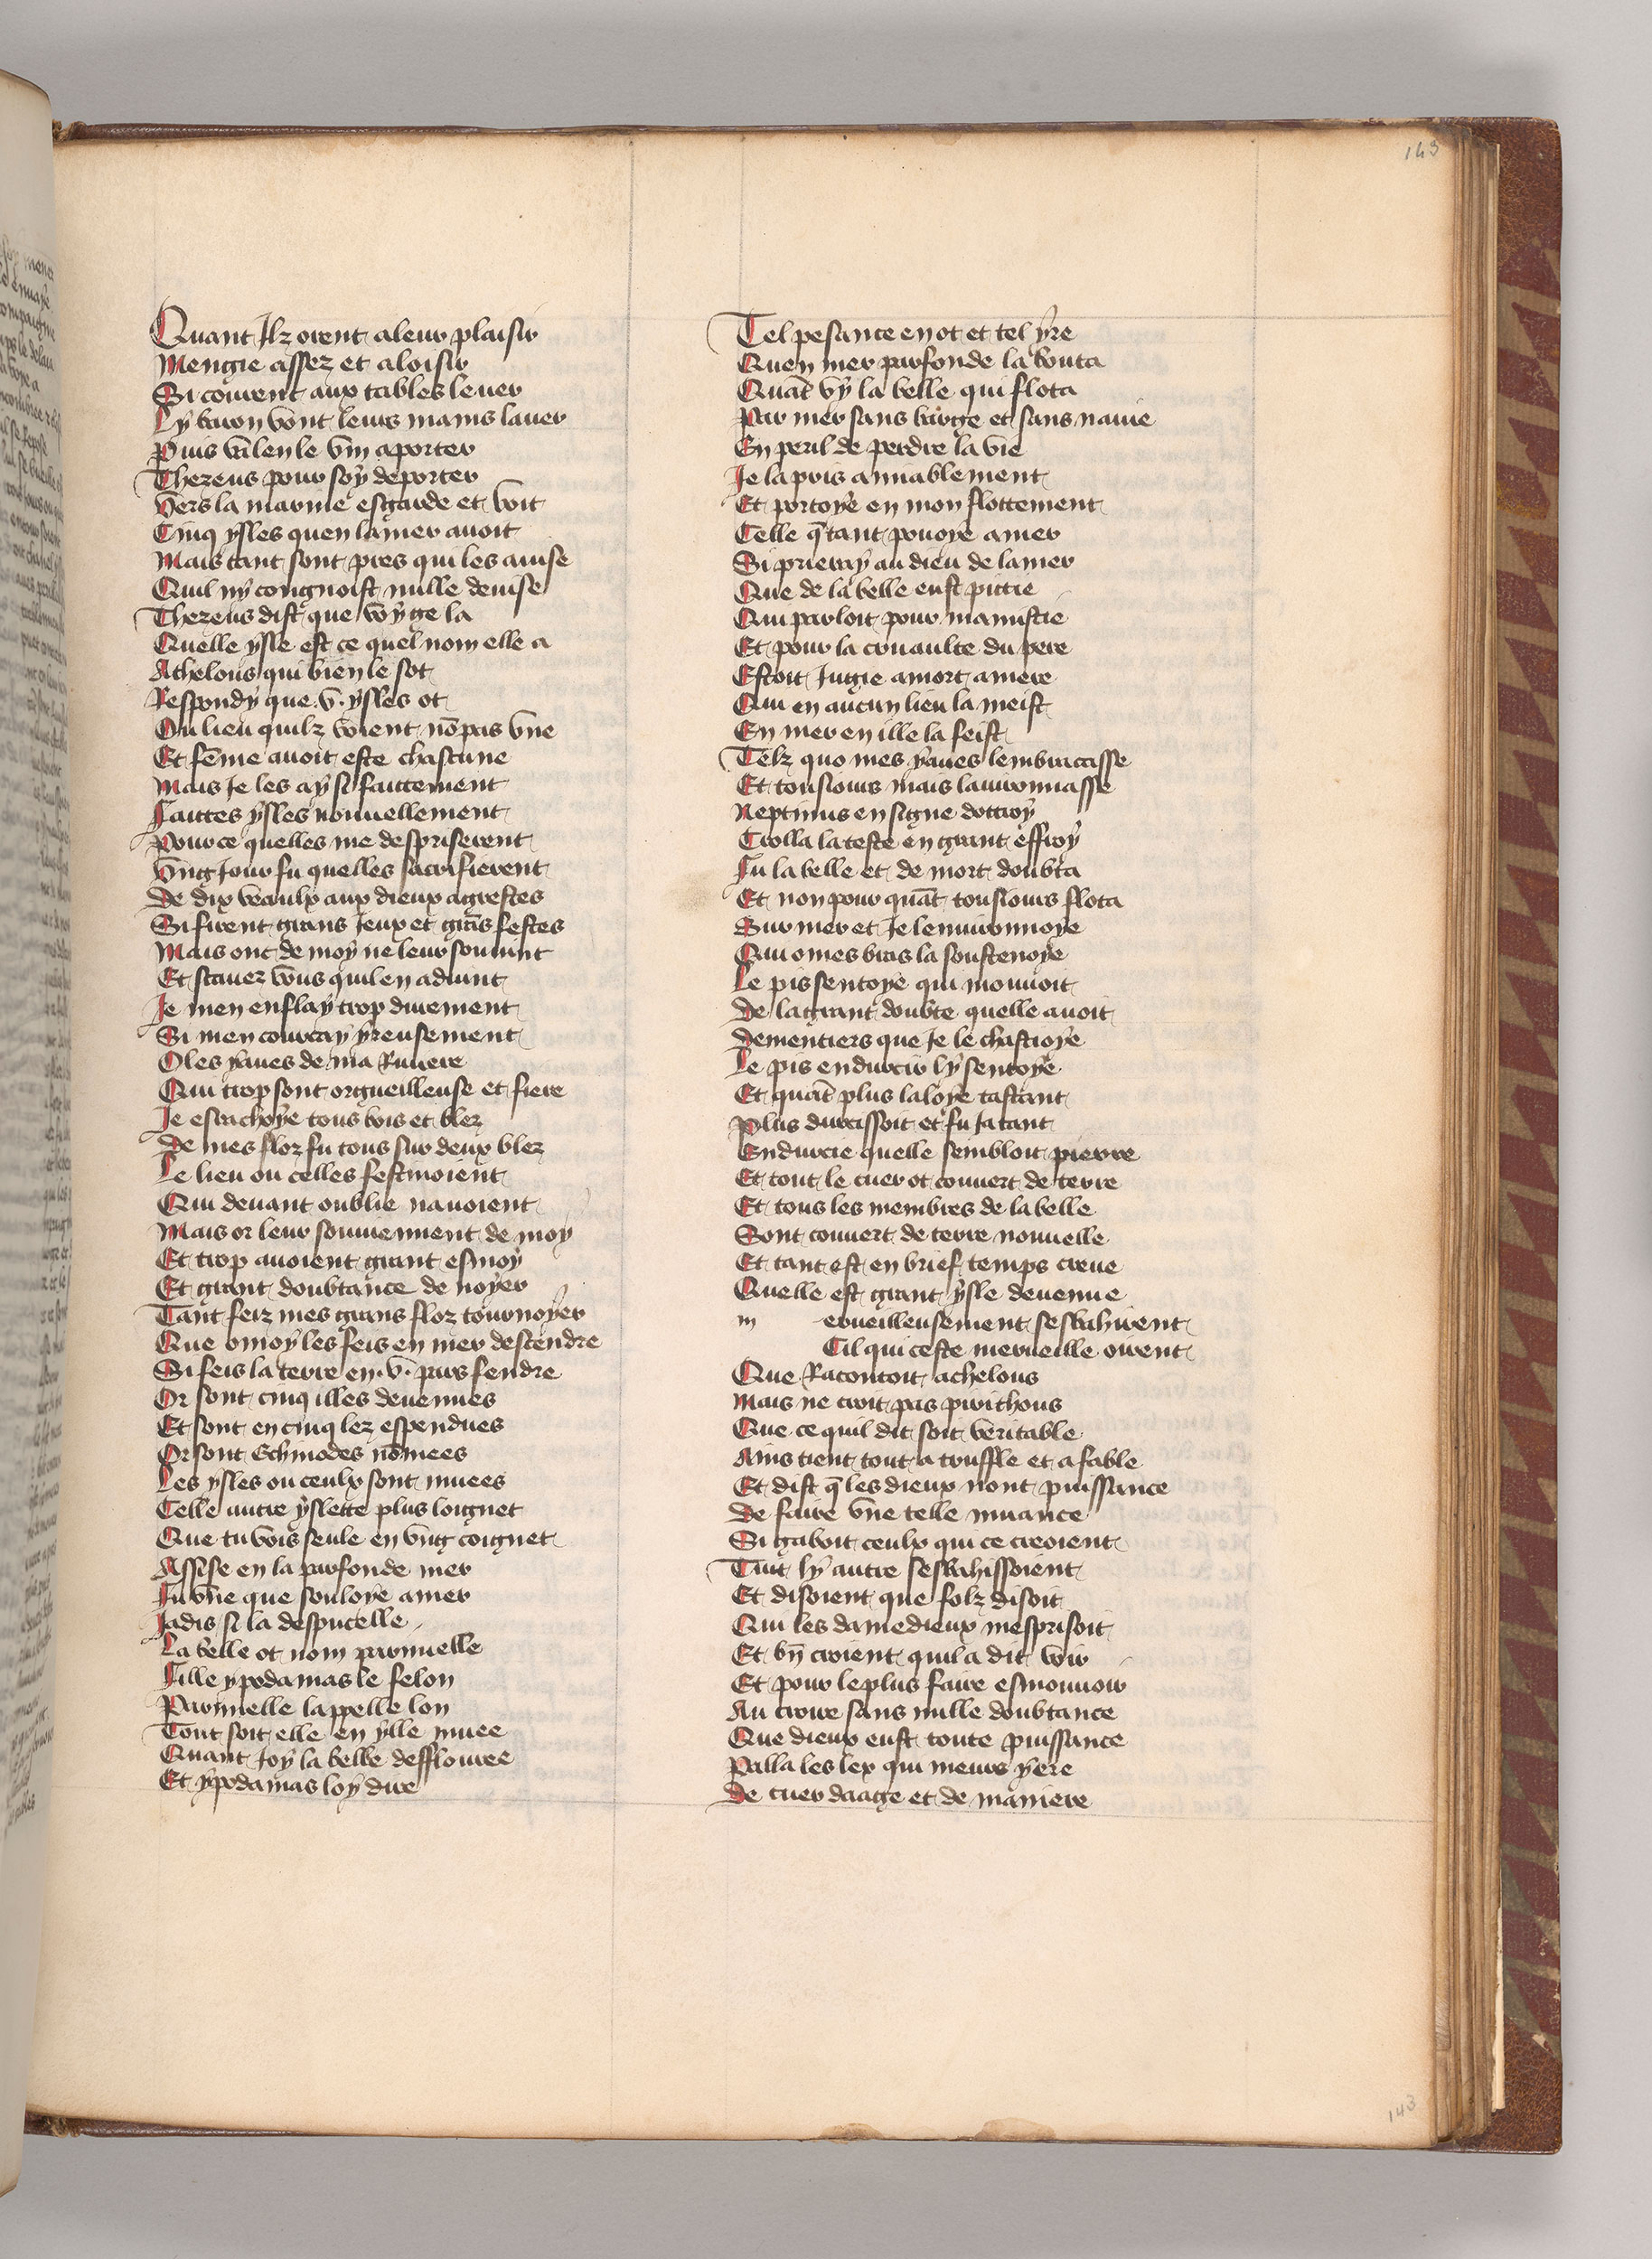 143
Quant Ilz orent a leur plaisir
Mengie assez et a loisir
Si courent aux tables lever
Ly baron vont leurs mains laver
Puis va len le vin aporter
Thezeus pour soy deporter
Vers la marine esgarde et voit
Cinq ysles quen la mer avoit
Mais tant sont pres qui les avise
Quil ny congnoist nulle devise
Thezeus dist que voy ge la
Quelle ysle est ce quel nom elle a
Athelous qui bien le sot
Respondy que .v. ysles ot
Ou lieu quilz voient nō pas vne
Et fēme avoit este chascune
Mais Je les ay si faictement
Faictes ysles nouvellement
Pour ce quelles me despriserent
Vng Jour fu quelles sacrifierent
De dix veaulx aux dieux agrestes
Si firent grans Jeux et grās festes
Mais onc de moy ne leur souvint
Et scavez vous quil en advint
Je men enflay trop durement
Si men couvray yreusement
O les yaues de ma Riviere
Qui trop sont orgueilleuse et fiere
Je esrachoye tous bois et blez
De mes floz fu tous sur deux blez
Le lieu ou celles festivoient
Qui devant oublie navoient
Mais or leur souviennent de moy
Et trop avoient grant esmoy
Et grant doubtance de noyer
Tant feiz mes grans floz tournoyer
Que o moy les feis en mer descendre
Si feis la terre en .v. pars fendre
Or sont cinq illes devenues
Et sont en cinq lez espendues
Or sont Echinodes nōmees
Les ysles ou ceulx sont muees
Celle autre yslette plus loignet
Que tu vois seule en vng coignet
Assise en la parfonde mer
Fu vne que souloye amer
Jadis si la despucelle
La belle ot nom parmuelle
Fille ypodamas le felon
Parmuelle lappelle lon
Tout soit elle en ylle muee
Quant Joy la belle desflouree
Et ypodamas loy dire
Tel pesance en ot et tel yre
Quen mer parfonde la bouta
Quāt vy la belle qui flota
Par mer sans barge et sans navie
En peril de perdre la vie
Je la pris amiablement
Et portoye en mon flottement
Celle q̄ tant povoye amer
Si prieray au dieu de la mer
Que de la belle eust pittie
Qui parloit pour mamistie
Et pour la cruaulte du pere
Estoit Jugie a mort amere
Qui en aucun lieu la meist
En mer en ille la feist
Telz quo mes yaues lembracasse
Et tousiours mais lavironnasse
Neptunus en signe dottroy
Crolla la teste en grant effroy
Fu la belle et de mort doubta
Et non pour quāt tousiours flota
Sur mer et Je lenvironnoye
Qui o mes bras la soustenoye
Le pis sentoye qui mouvoit
De la grant doubte quelle avoit
Dementiers que Je le chastioye
Le pis endurcir ly sentoye
Et quāt plus laloye tastant
Plus durcissoit et fu Ja tant
Endurcie quelle sembloit pierre
Et tout le cuer ot couvert de terre
Et tous les membres de la belle
Sont couvert de terre nouvelle
Et tant est en brief temps creue
Quelle est grant ysle devenue
m erveilleusement sesbahirent
Cil qui ceste merveille oirent
Que Racontoit achelous
Mais ne croit pas pirithous
Que ce quil dit soit veritable
Ains tient tout a truffle et a fable
Et dist q̄ les dieux nont puissance
De faire vne telle muance
Si gaboit ceulx qui ce creoient
Tuit ly autre sesbahissoient
Et disoient que folz disoit
Qui les damedieux mesprisoit
Et bn̄ croient quil a dit voir
Et pour le plus faire esmouvoir
Au croire sans nulle doubtance
Que dieux eust toute puissance
Palla les lex qui meurs yere
De cuer daage et de maniere
143